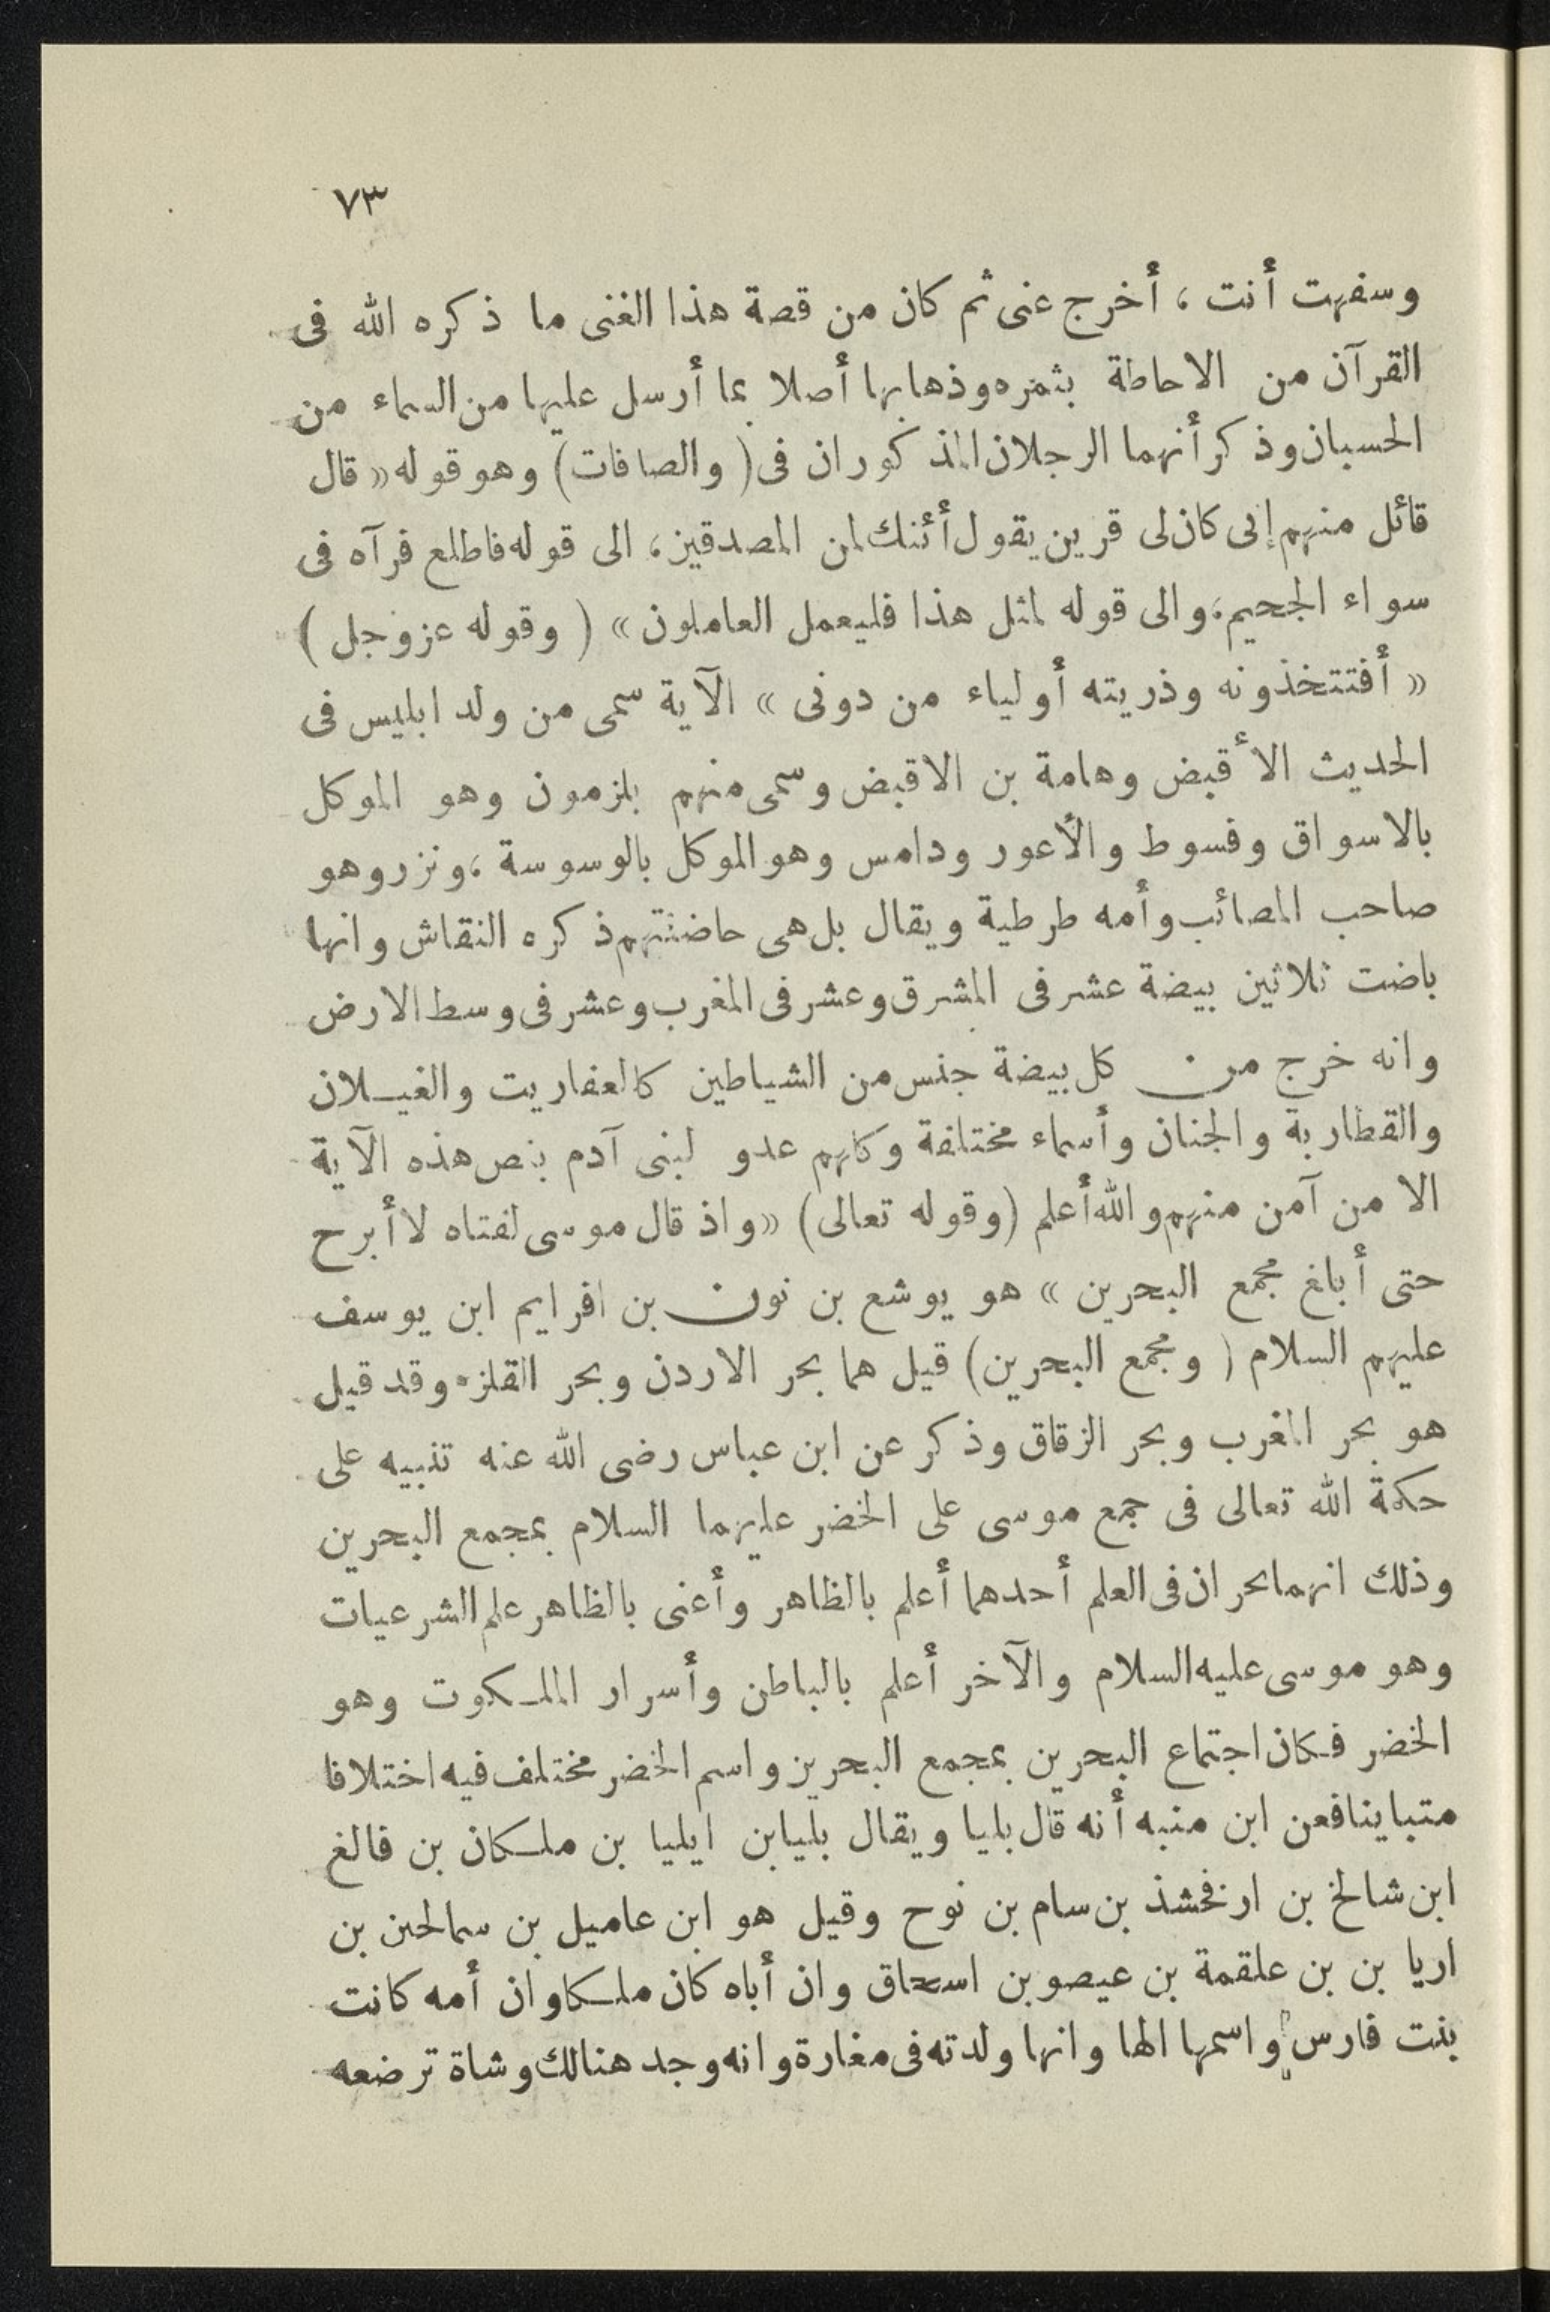 ٧٣
وسفهت أنت ، أخرج عنى ثم كان من قصة هذا الغنى ما ذكره الله فى
القرآن من الاحاطة بثمره وذهابها أصلا بما أرسل عليها من السماء من
الحسبان وذكر أنهما الرجلان المذكوران فى ( والصافات ) وهو قوله « قال
قائل منهم إنى كان لى قرين يقول أئنك لمن المصدقين ، الى قوله فاطلع فرآه فى
سواء الجحيم ، والى قوله لمثل هذا فليعمل العاملون » ( وقوله عز وجل )
« أفتتخذونه وذريته أولياء من دونى » الآية سمى من ولد ابليس فى
الحديث الأقبض وهامة بن الاقبض وسمى منهم بلزمون وهو الموكل
بالاسواق وفسوط والأعور ودامس وهو الموكل بالوسوسة ، ونزر وهو
صاحب المصائب وأمه طرطية ويقال بل هى حاضنتهم ذكره النقاش وانها
باضت ثلاثين بيضة عشر فى المشرق وعشر فى المغرب وعشر فى وسط الارض
وانه خرج من كل بيضة جنس من الشياطين كالعفاريت والغيلان
والقطاربة والجنان وأسماء مختلفة وكلهم عدو لبنى آدم بنص هذه الآية
الا من آمن منهم والله أعلم ( وقوله تعالى ) « واذ قال موسى لفتاه لا أبرح
حتى أبلغ مجمع البحرين » هو يوشع بن نون بن افرايم ابن يوسف
عليهم السلام ( ومجمع البحرين ) قيل هما بحر الاردن وبحر القلزم وقد قيل
هو بحر المغرب وبحر الزقاق وذكر عن ابن عباس رضى الله عنه تنبيه على
حكمة الله تعالى فى جمع موسى على الخضر عليهما السلام بمجمع البحرين
وذلك انهما بحران فى العلم أحدهما أعلم بالظاهر وأعنى بالظاهر علم الشرعيات
وهو موسى عليه السلام والآخر أعلم بالباطن وأسرار الملكوت وهو
الخضر فكان اجتماع البحرين بمجمع البحرين واسم الخضر مختلف فيه اختلافا
متباينا فعن ابن منبه أنه قال بليا ويقال بليا بن ايليا بن ملكان بن فالغ
ابن شالخ بن ارفخشذ بن سام بن نوح وقيل هو ابن عاميل بن سمالحين بن
اريا بن بن علقمة بن عيصو بن اسحاق وان أباه كان ملكا وان أمه كانت
بنت فارس واسمها الها وانها ولدته فى مغارة وانه وجد هنالك وشاة ترضعه